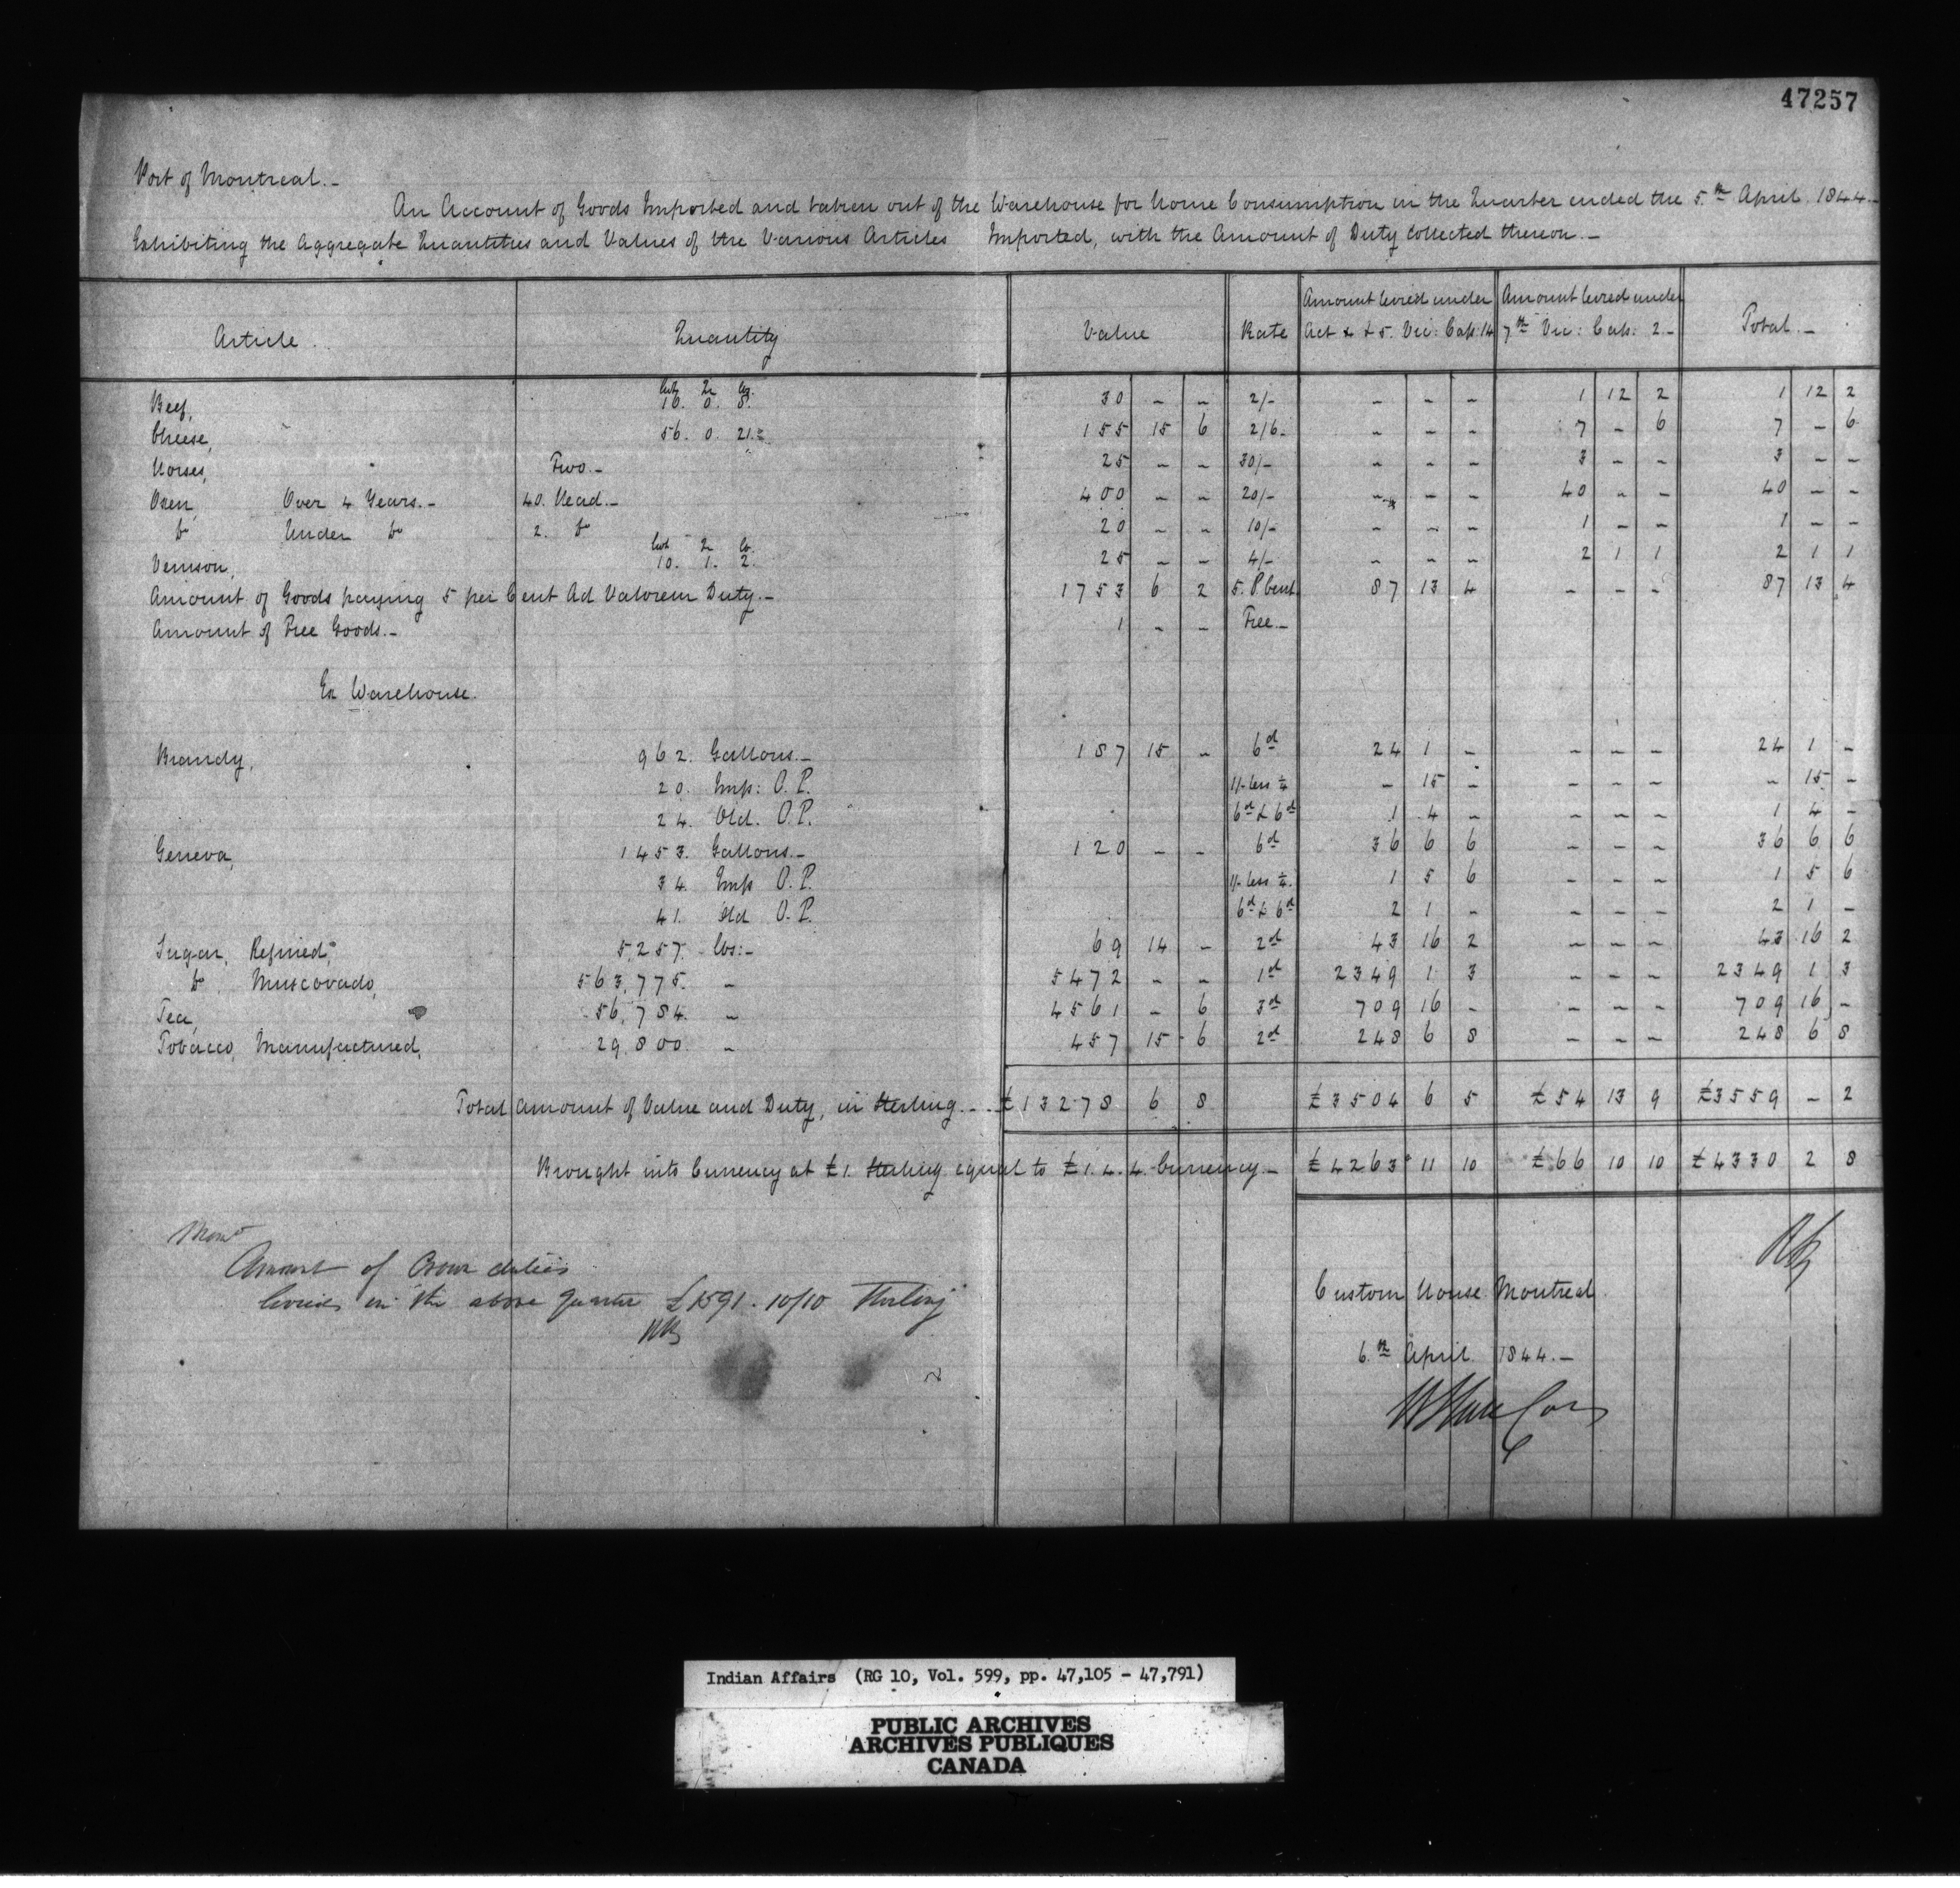 47257
Port of Montreal.-
An Account of Goods Imported and taken out of the Warehouse for Home Consumption in the Quarter ended the 5.th April 1844.-
Exhibiting the Aggregate Quantities and Values of the Various Articles Imported, with the Amount of Duty Collected thereon.-
Article. Quantity Value Rate Amount levied under Act 4 & 5. Vic: Cap: 14 Amount levied under 7th Vic: Cap: 2- Total.-
Cwt Qr lbs.
Beef, 16. 0. 8. 30 - - 2/- - - - 1 12 2 1 12 2
Cheese, 56. 0. 21.= 155 15 6 2/6- - - - 7 - 6 7 - 6
Horses, Two.- 25 - - 30/- - - - 3 - - 3 - -
Oxen, Over 4 Years.- 40. Head.- 400 - - 20/- - - - 40 - - 40 - -
Do Under Do 2. Do 20 - - 10/- - - - 1 - - 1 - -
Cwt Qr lb.
Venison, 10. 1. 2. 25 - - 4/- - - - 2 1 1 2 1 1
Amount of Goods paying 5 per Cent Ad Valorem Duty.- 1753 6 2 5. P Cent. 87 13 4 - - - 87 13 4
Amount of Free Goods.- 1 - - Free.-
Ex Warehouse.
Brandy, 962. Gallons.- 187 15 - 6d 24 1 - - - - 24 1 -
20. Imp: O.P. 1/- less ¼ - 15 - - - - - 15 -
24. Old. O.P. 6d & 6d 1 4 - - - - 1 4 -
Geneva, 1453. Gallons.- 120 - - 6d 36 6 6 - - - 36 6 6
34. Imp O.P. 1/- less ¼. 1 5 6 - - - 1 5 6
41. Old O.P. 6d & 6d 2 1 - - - - 2 1 -
Sugar, Refined, 5,257. lbs:- 69 14 - 2d 43 16 2 - - - 43 16 2
Do. Muscovado, 563,775. - 5472 - - 1d 2349 1 3 - - - 2349 1 3
Tea, 56,784. - 4561 - 6 3d 709 16 - - - - 709 16 -
Tobacco, Manufactured, 29,800. - 457 15 6 2d 248 6 8 - - - 248 6 8
Total amount of Value and Duty, in Sterling.- £13278 6 8 £3504 6 5 £54 13 9 £3559 - 2
Brought into Currency at £1. Sterling equal to £1.4.4. Currency.- £4263 11 10 £66 10 10 £4330 2 8
Amount of Crown duties
levied in the above quarter £1591.10/10 Sterling
Custom House Montreal
6.th April 1844.-
Indian Affairs (RG 10, Vol. 599, pp. 47,105 - 47,791)
PUBLIC ARCHIVES
ARCHIVES PUBLIQUES
CANADA